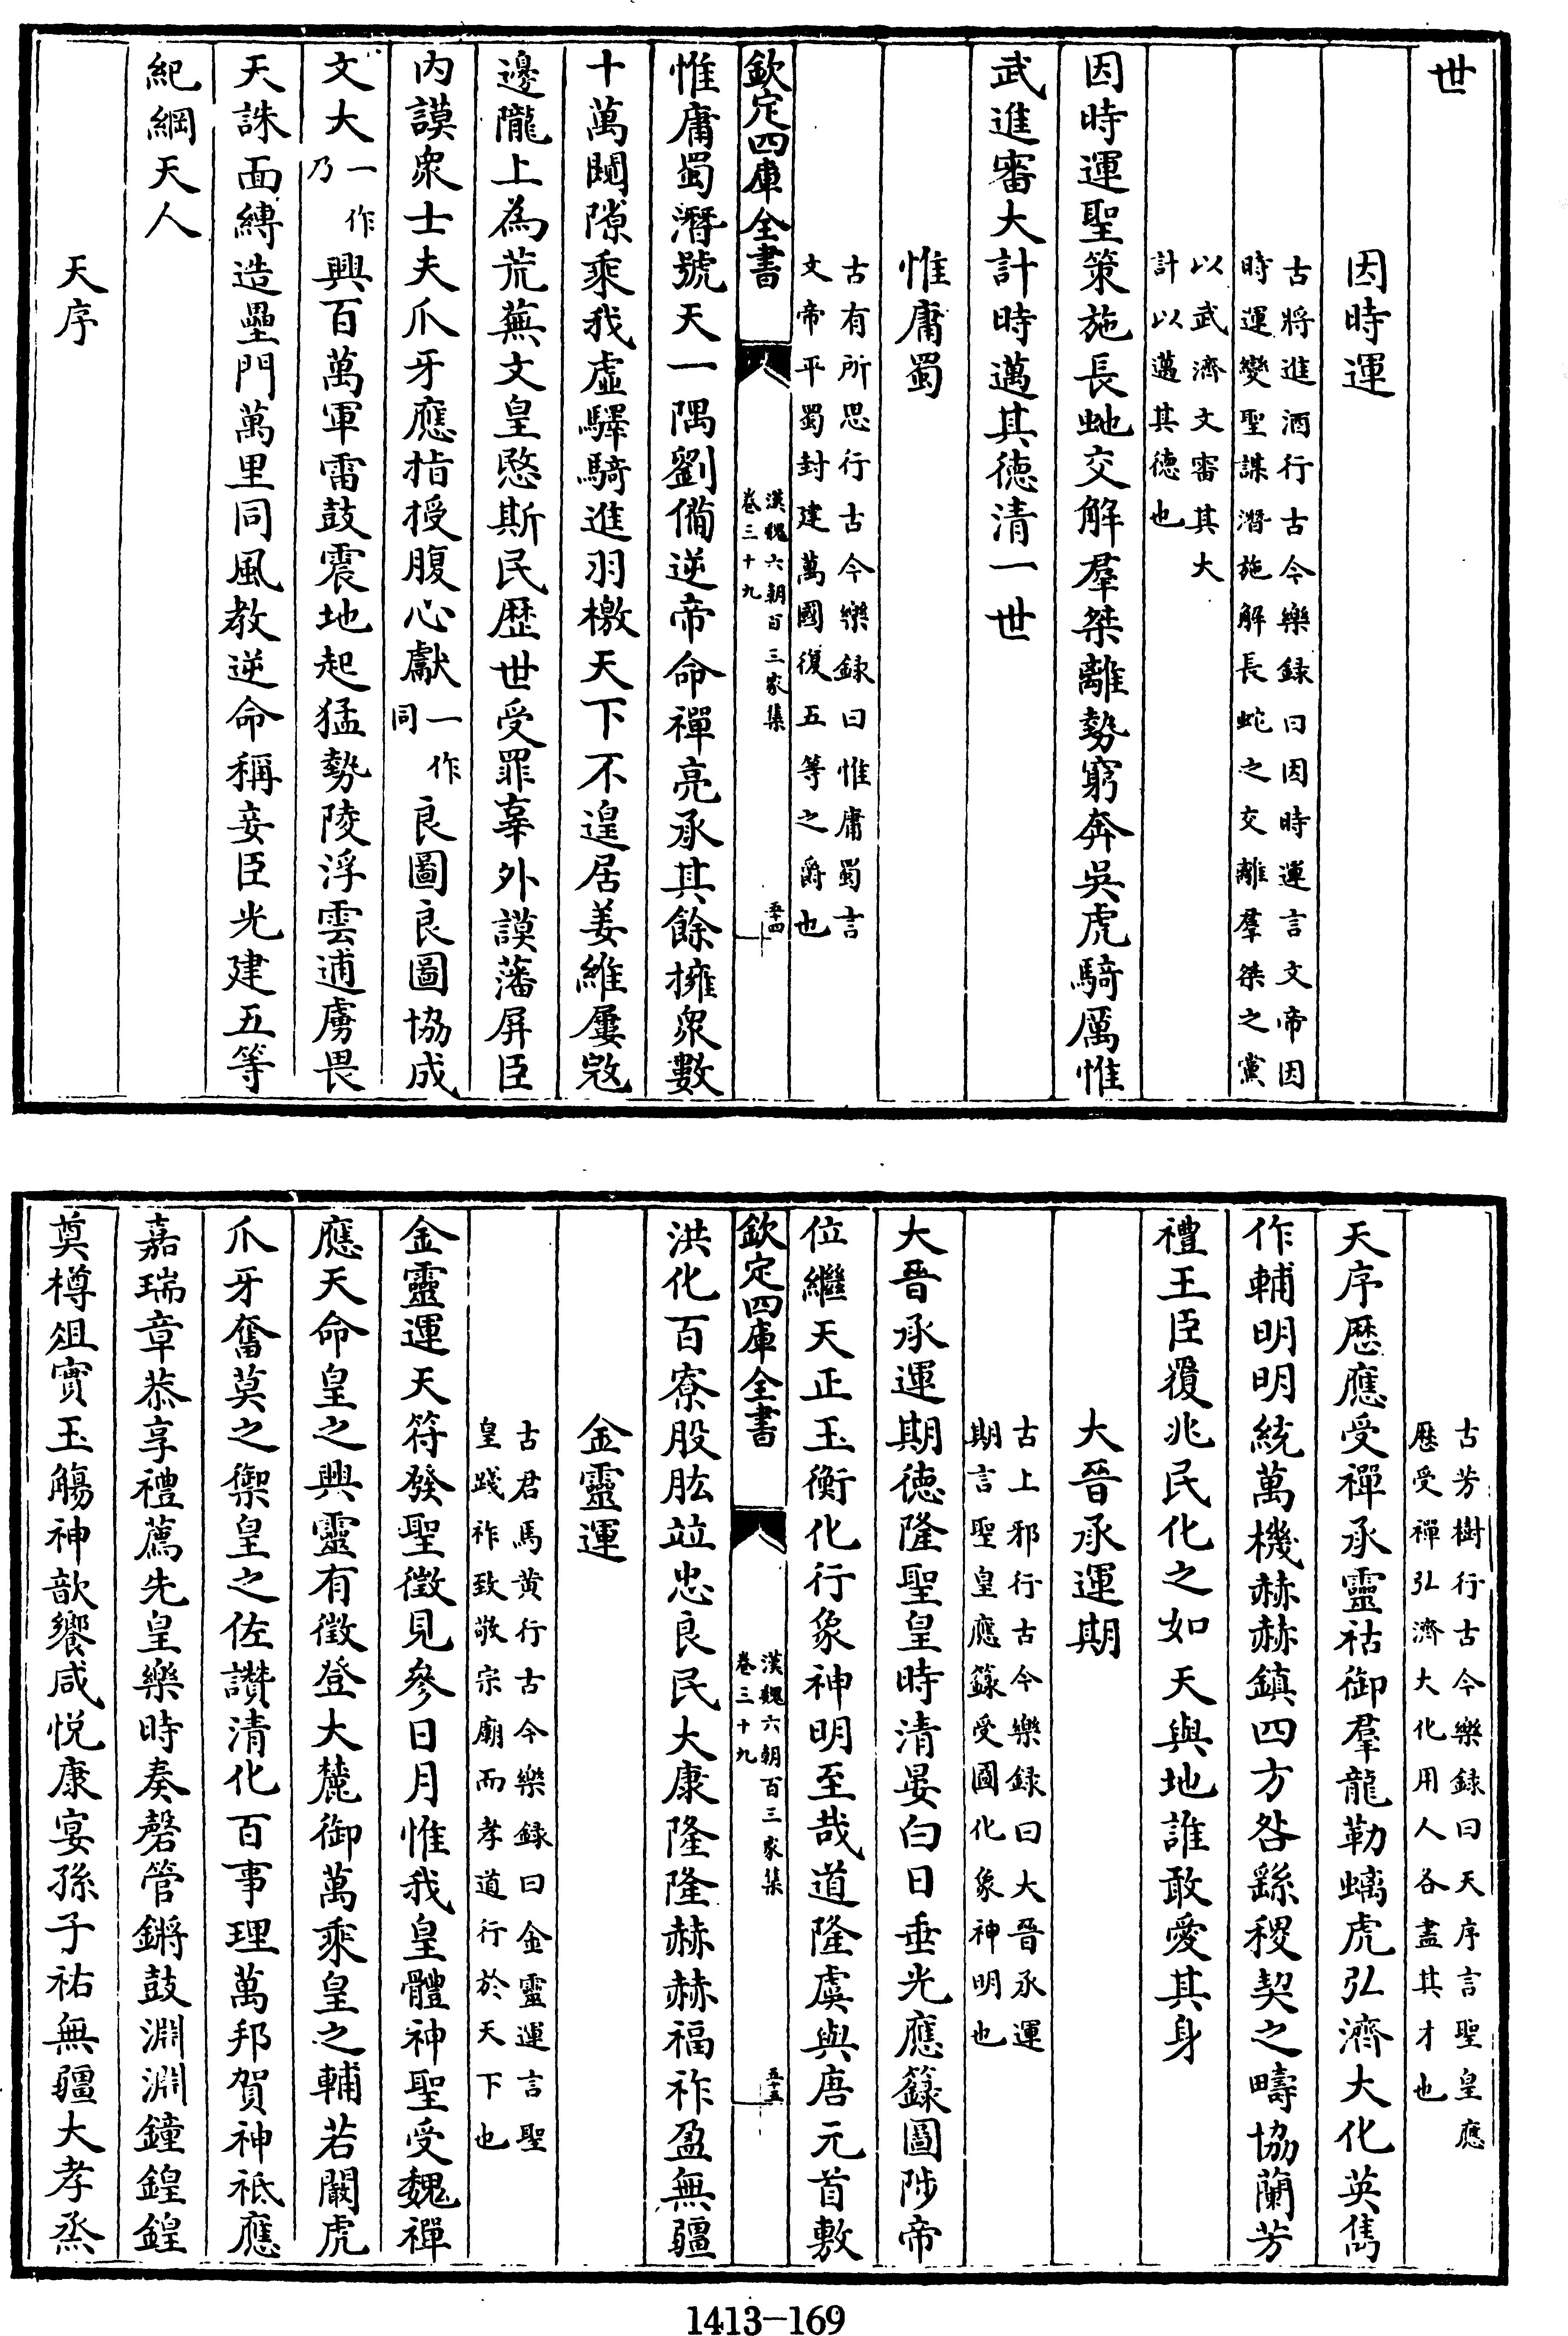 世
因時運
古將進酒行古今樂録曰因時運言文帝因
時運變聖謀潛施解長蛇之交離羣桀之黨
以武濟文審其大
計以邁其德也
因時運聖策施長虵交解羣桀離勢窮奔吳虎騎厲惟
武進審大計時邁其徳清一世
惟庸蜀
古有所思行古今樂録曰惟庸蜀言
文帝平蜀封建萬國復五等之爵也
欽定四庫全書
漢魏六朝百三家集
卷三十九
五十四
惟庸蜀潛號天一隅劉備逆帝命禪亮承其餘擁衆數
十萬闚隙乘我虛驛騎進羽檄天下不遑居姜維屢宼
邊隴上為荒蕪文皇愍斯民歷世受罪辜外謨藩屏臣
内謨衆士夫爪牙應指授腹心獻一作同良圖良圖協成
文大一作乃興百萬軍雷鼓震地起猛勢陵浮雲逋虜畏
天誅面縛造壘門萬里同風教逆命稱妾臣光建五等
紀綱天人
天序
古芳樹行古今樂録曰天序言聖皇應
厯受禪弘濟大化用人各盡其才也
天序厯應受禪承靈祜御羣龍勒螭虎弘濟大化英雋
作輔明明統萬機赫赫鎮四方咎繇稷契之疇協蘭芳
禮王臣覆兆民化之如天與地誰敢愛其身
大晉承運期
古上邪行古今樂録曰大晉承運
期言聖皇應籙受圖化象神明也
大晉承運期德隆聖皇時清晏白日垂光應籙圖陟帝
位繼天正玉衡化行象神明至哉道隆虞與唐元首敷
欽定四庫全書
漢魏六朝百三家集
卷三十九
五十五
洪化百寮股肱竝忠良民大康隆隆赫赫福祚盈無疆
金靈運
古君馬黄行古今樂録曰金靈運言聖
皇踐祚致敬宗廟而孝道行於天下也
金靈運天符發聖徵見參日月惟我皇體神聖受魏禪
應天命皇之興靈有徵登大麓御萬乘皇之輔若闞虎
爪牙奮莫之禦皇之佐讃清化百事理萬邦賀神祗應
嘉瑞章恭享禮薦先皇樂時奏磬管鏘鼓淵淵鐘鍠鍠
奠樽俎實玉觴神歆饗咸悦康宴孫子祐無疆大孝烝
1413—169